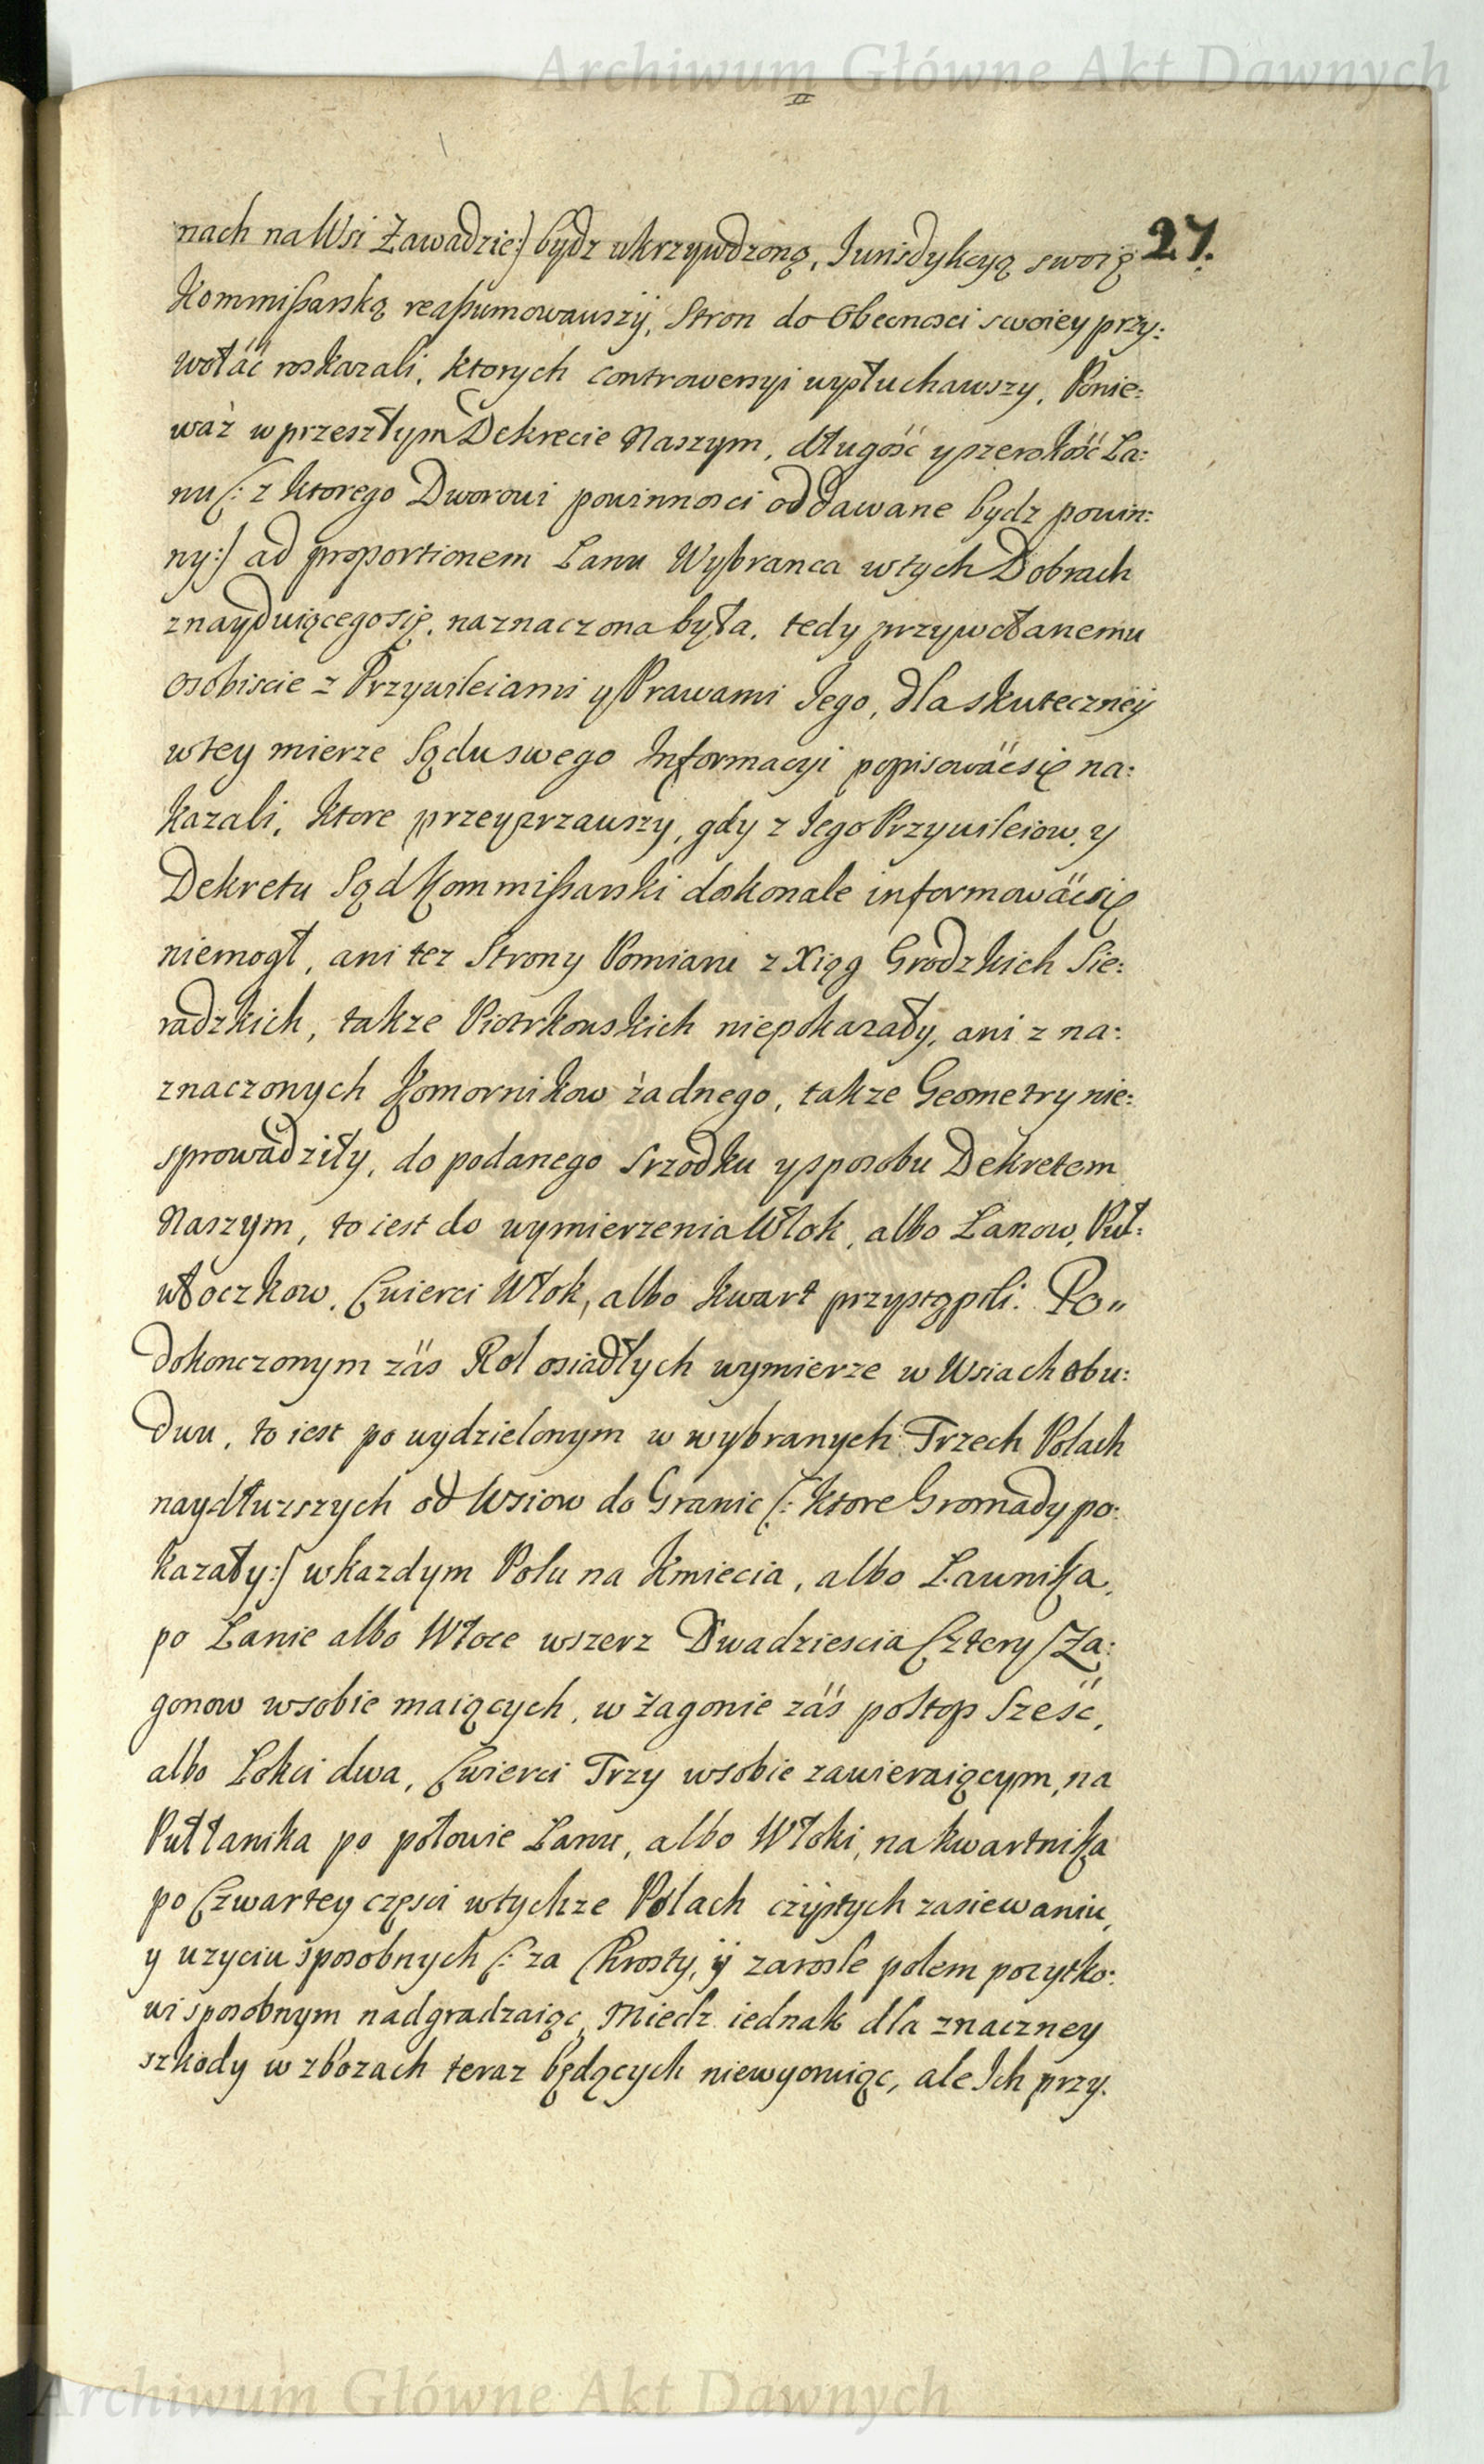 Archiwum Główne Akt Dawnych
II
27.
nach na Wsi Zawadzie:) bydz ukrzywdzoną, Iurisdykcyą swoię
Kommißarską reaßumowawszÿ, Stron do Obecnosci swoiey przy:
wołać roskazali, ktorych controwersyi wysłuchawszy, Ponie:
waż w przeszłym Dekrecie Naszym, długość y szerokość La:
nu (: z ktorego Dworowi powinnosci oddawane bydz powin:
ny:) ad proportionem Lanu Wybranca w tych Dobrach
znayduiącego się, naznaczona była, tedy przywołanemu
osobiscie z Przywileiami y Prawami Iego, dla skuteczney
w tey mierze Sądu swego Informacyi popisować się na:
kazali, ktore przeyzrzawszy, gdy z Iego Przywileiow, y
Dekretu Sąd Kommißarski doskonale informować się
niemogł, ani tez Strony Pomiaru z Xiąg Grodzkich Sie:
radzkich, takze Piotrkowskich niepokazały, ani z na:
znaczonych Komornikow żadnego, takze Geometry nie:
sprowadziły, do podanego srzodku y sposobu Dekretem
Naszym, to iest do wymierzenia Wlok, albo Lanow, Puł:
włoczkow, Cwierci Włok, albo kwart przystąpili. Po„
dokonczonym zaś Rol osiadłych wymierze w Wsiach obu:
dwu, to iest po wydzielonym w wybranych Trzech Polach
naydłuzszych od Wsiow do Granic (: ktore Gromady po:
kazały:) w kazdym Polu na Kmiecia, albo Launika,
po Lanie albo Włoce wszerz Dwadziescia Cztery Za:
gonow w sobie maiących, w Zagonie zaś postop Sześć,
albo Lokci dwa, Cwierci Trzy w sobie zawieraiącym, na
Pułłanika po połowie Lanu, albo Włoki, na kwartnika
po Czwartey częsci w tychze Polach czÿstych zasiewaniu,
y uzyciu sposobnych (: za Chrosty, ÿ zarosle polem pozytko:
wi sposobnym nadgradzaiąc, Miedz iednak dla znaczney
szkody w zbozach teraz będących niewyoruiąc, ale Ich przy.
Archiwum Główne Akt Dawnych